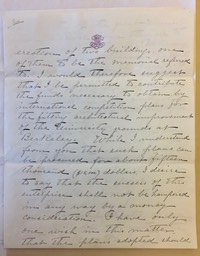 erection of two buildings, one
of them to be the memorial referred
to. I would therefore suggest
that I be permitted to contribute
the funds necessary to obtain by
international competition plans for
the fitting architectural improvement
of the University grounds at
Berkeley. While I understand
from you that such plans can
be procured for about fifteen
thousand dollars, I desire
to say that the success of this
enterprise shall not be hampered
in any way by a money
consideration. I have only
one wish in this matter,
that the plans adopted should